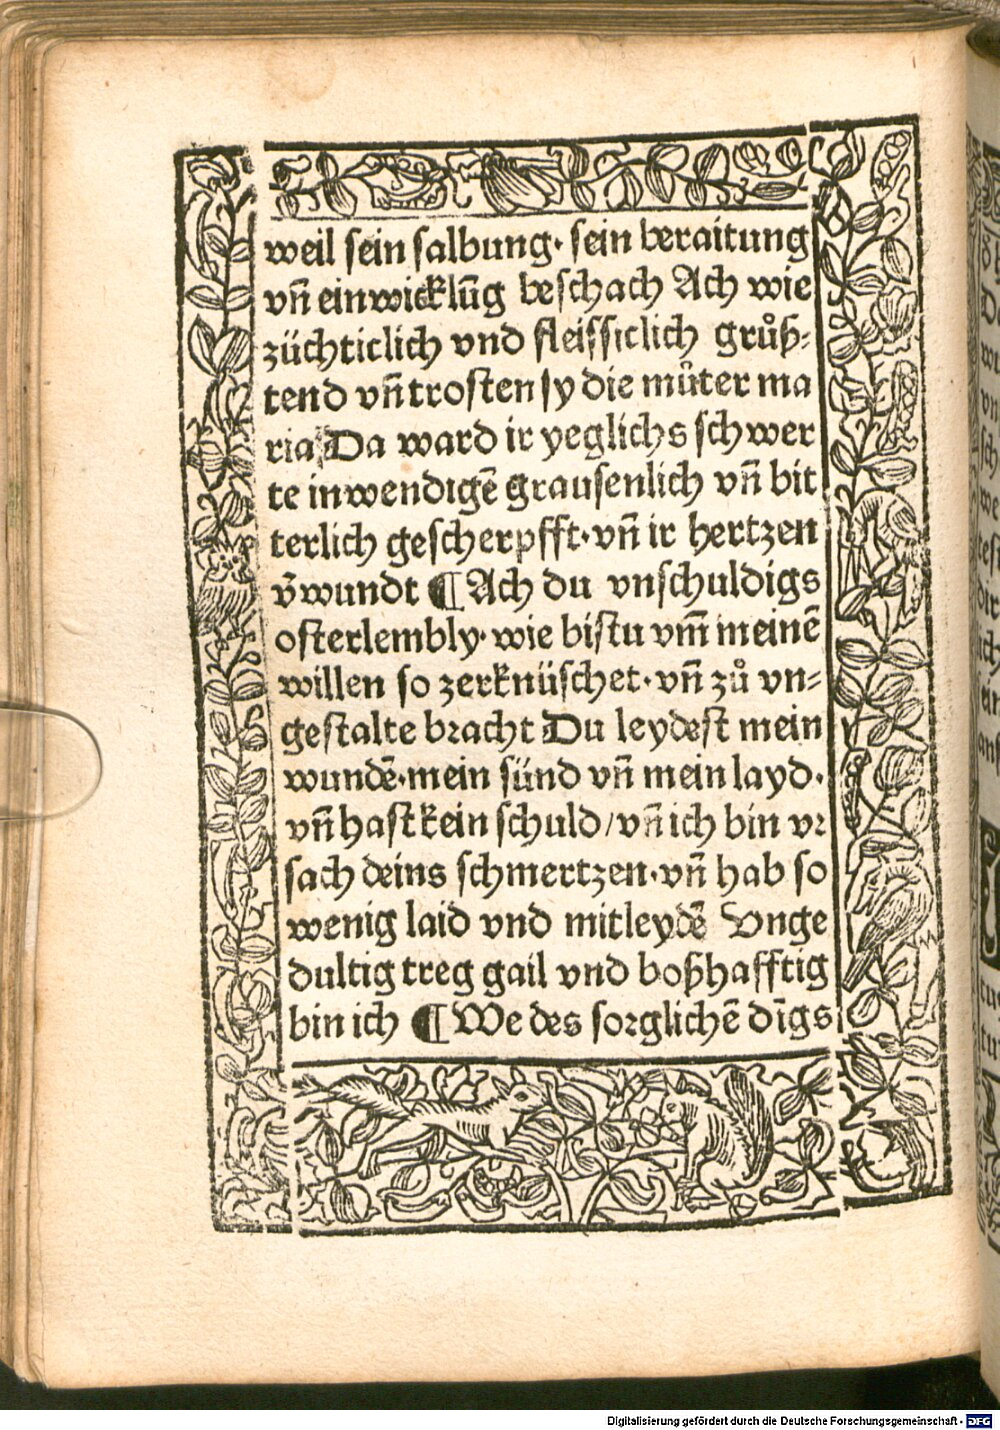 weil sein salbung· sein beraitung
vn̄ einwicklūg beschach Ach wie
züchticlich vnd fleissiclich grůß⸗
tend vn̄ trosten sy die můter ma
ria Da ward ir yeglichs schwer
te inwendigē grausenlich vn̄ bit
terlich gescherpfft· vn̄ ir hertzen
v̄wundt ¶ Ach du vnschuldigs
osterlembly· wie bistu vm̄ meinē
willen so zerknüschet· vn̄ zů vn⸗
gestalte bracht Du leydest mein
wundē· mein sünd vn̄ mein layd·
vn̄ hast kein schuld/ vn̄ ich bin vr
sach deins schmertzen· vn̄ hab so
wenig laid vnd mitleydē Vnge
dultig treg gail vnd boßhafftig
bin ich ¶ We des sorglichē dīgs
Digitalisierung gefördert durch die Deutsche Forschungsgemeinschaft - DFG